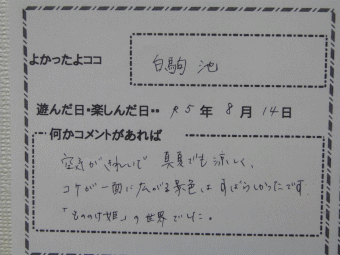 よかったよココ 白駒池
遊んだ日・楽しんだ日・・ R5 年 8 月 14 日
何かコメントがあれば
空気がきれいで 真夏でも涼しく、
コケが一面に広がる景色は すばらしかったです.
「もののけ姫」の世界でした。